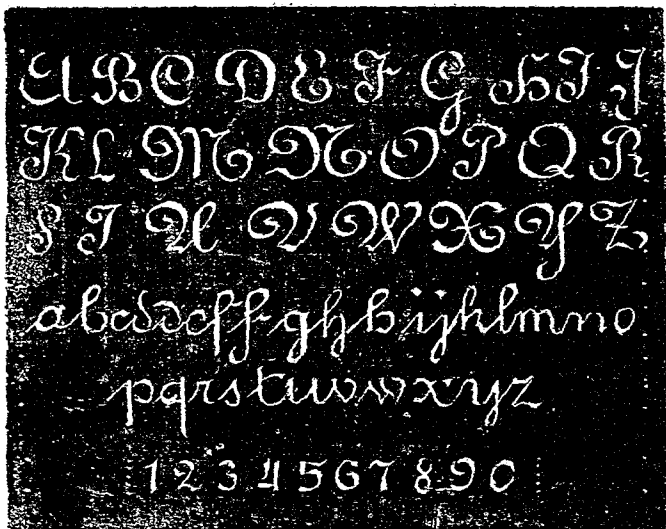 A B C D E F G H I J
K L M N O P Q R
S T U V W X Y Z
abcddeffghhijklmno
pqrstuvwxyz
1 2 3 4 5 6 7 8 9 0